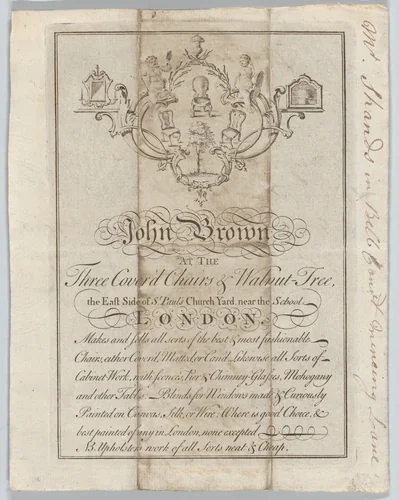 John Brown
At The
Three Cover'd Chairs & Walnut-Tree,
the East Side of St. Paul's Church Yard, near the School
LONDON.
Makes and sells all sorts of the best & most fashionable
Chairs, either Cover'd, Matted, or Can'd. Likewise all Sorts of
Cabinet Work, with sconces, Pier & Chimney-Glasses, Mohogany
and other Tables. Blinds for Windows made & Curiously
Painted on Canvas, Silk, or Wire. Where is good Choice, &
best painted of any in London, none excepted.
NB. Upholsters work of all Sorts neat & Cheap.
Mr. Shands in Bell Court Mincing Lane